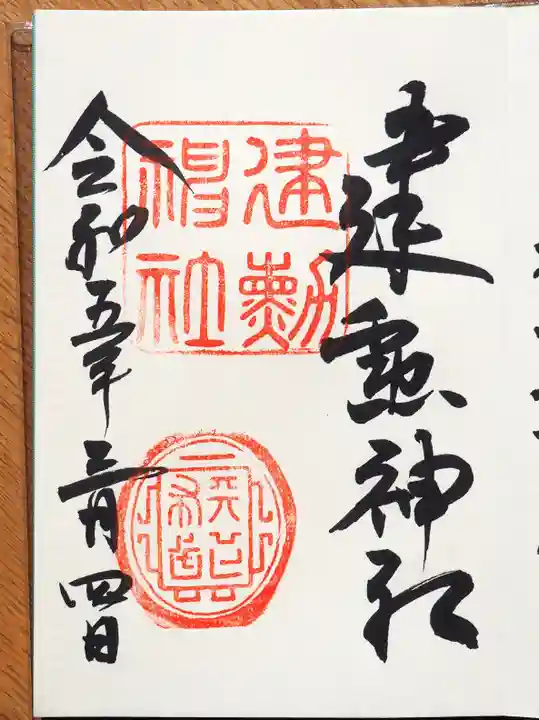 建勲神社
建勳
神社
令和五年三月四日